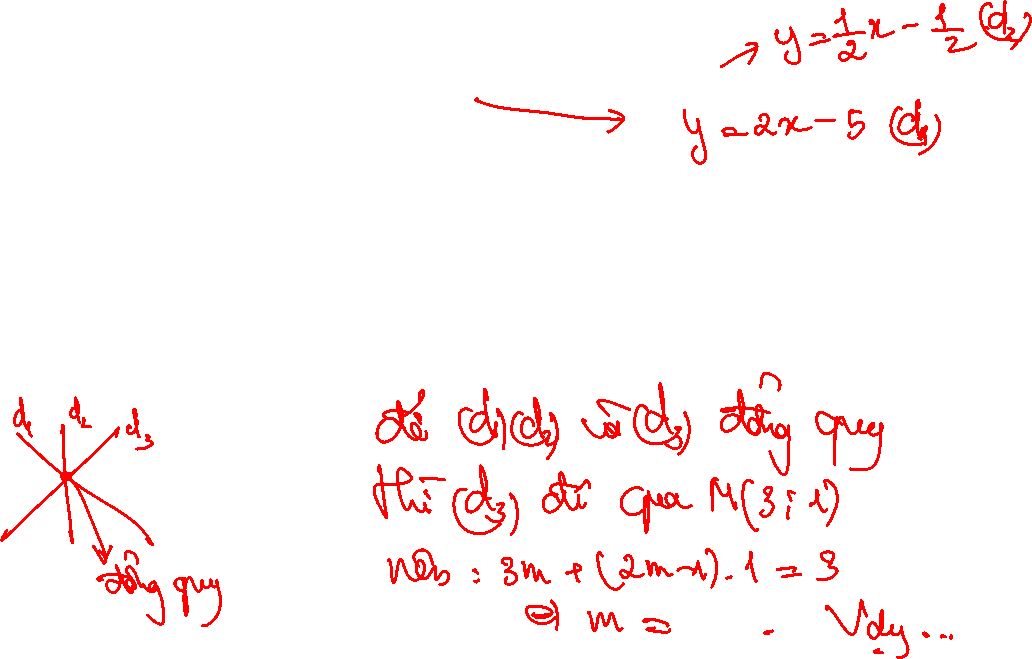 y = 1/2 x - 1/2 (d2)
y = 2x - 5 (d1)
d1 d2 d3
đồng quy
để (d1) (d2) và (d3) đồng quy
thì (d3) đi qua M(3; 1)
nên : 3m + (2m-1).1 = 3
⇔ m = . Vậy ...